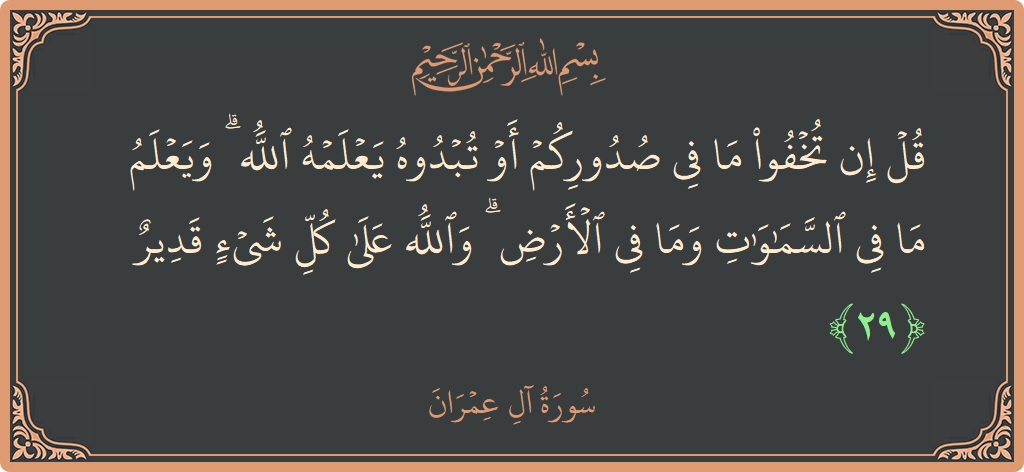 بِسْمِ اللَّهِ الرَّحْمَٰنِ الرَّحِيمِ
قُلْ إِن تُخْفُوا۟ مَا فِى صُدُورِكُمْ أَوْ تُبْدُوهُ يَعْلَمْهُ ٱللَّهُ ۗ وَيَعْلَمُ
مَا فِى ٱلسَّمَـٰوَٰتِ وَمَا فِى ٱلْأَرْضِ ۗ وَٱللَّهُ عَلَىٰ كُلِّ شَىْءٍ قَدِيرٌ
﴿٢٩﴾
سُورَةُ آلِ عِمْرَانَ